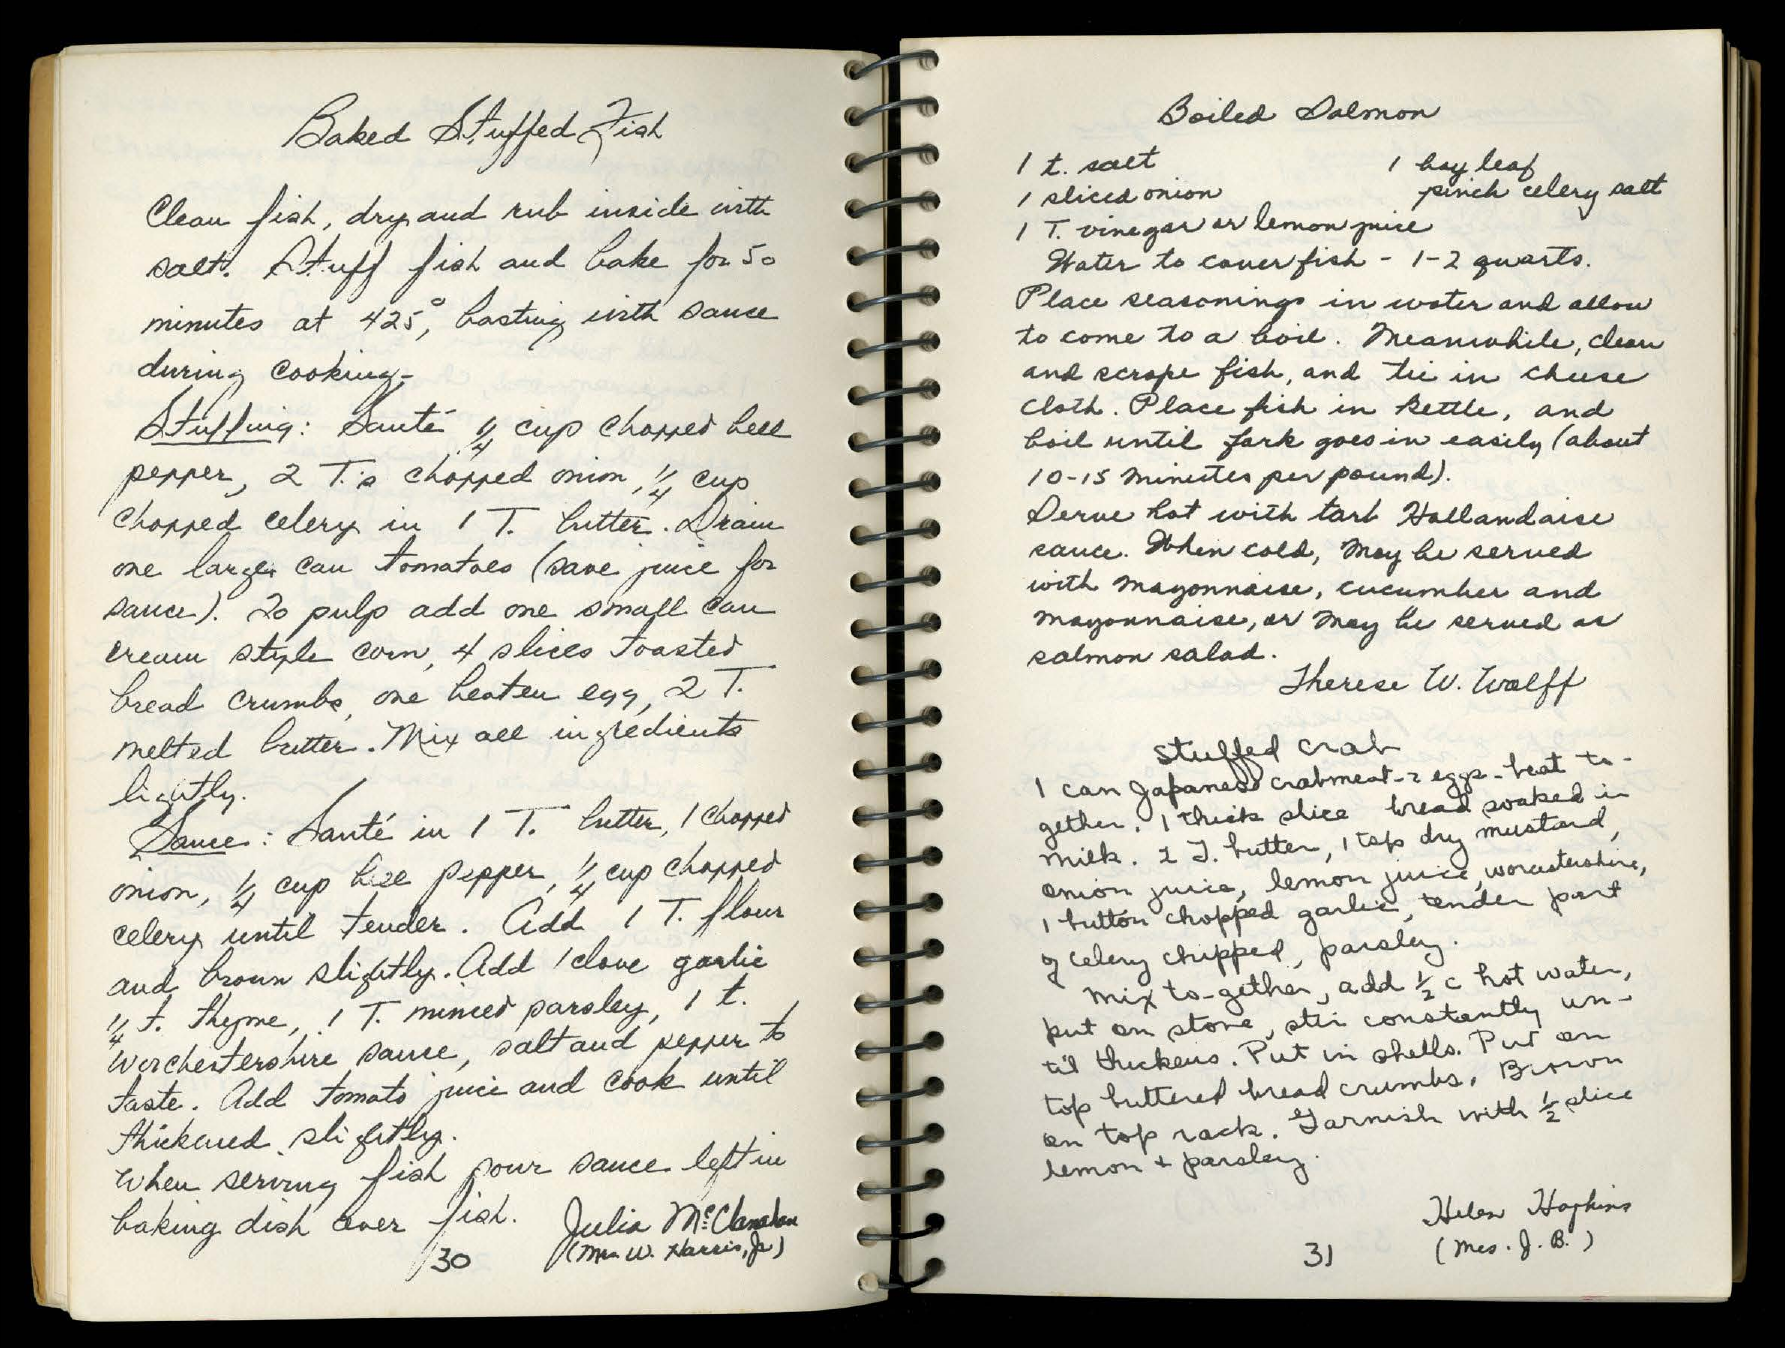 Baked Stuffed Fish
Clean fish, dry and rub inside with
salt. Stuff fish and bake for 50
minutes at 425°, basting with sauce
during cooking.
Stuffing: Sauté 1/4 cup chopped bell
pepper, 2 T.'s chopped onion, 1/4 cup
chopped celery in 1 T. butter. Drain
one large can tomatoes (save juice for
sauce). To pulp add one small can
cream style corn, 4 slices toasted
bread crumbs, one beaten egg, 2 T.
melted butter. Mix all ingredients
lightly.
Sauce: Sauté in 1 T. butter, 1 chopped
onion, 1/4 cup bell pepper, 1/4 cup chopped
celery until tender. Add 1 T. flour
and brown slightly. Add 1 clove garlic
1/4 t. thyme, 1 T. minced parsley, 1 t.
Worchestershire sauce, salt and pepper to
taste. Add tomato juice and cook until
thickened slightly.
When serving fish pour sauce left in
baking dish over fish.
Julia McClanahan
(Mrs W. Harris, Jr)
30
Boiled Salmon
1 t. salt 1 bay leaf
1 sliced onion pinch celery salt
1 T. vinegar or lemon juice
Water to cover fish - 1-2 quarts.
Place seasonings in water and allow
to come to a boil. Meanwhile, clean
and scrape fish, and tie in cheese
cloth. Place fish in kettle, and
boil until fork goes in easily (about
10-15 minutes per pound).
Serve hot with tart Hollandaise
sauce. When cold, may be served
with mayonnaise, cucumber and
mayonnaise, or may be served as
salmon salad.
Therese W. Wolff
Stuffed Crab
1 can Japanese crabmeat - 2 eggs - beat to-
gether. 1 thick slice bread soaked in
milk. 2 T. butter, 1 tsp dry mustard,
onion juice, lemon juice, worcestershire,
1 button chopped garlic, tender part
of celery chipped, parsley.
Mix to-gether, add 1/2 c hot water,
put on stove, stir constantly un-
til thickens. Put in shells. Put on
top buttered bread crumbs. Brown
on top rack. Garnish with 1/2 slice
lemon + parsley.
Helen Hopkins
(Mrs. J. B.)
31